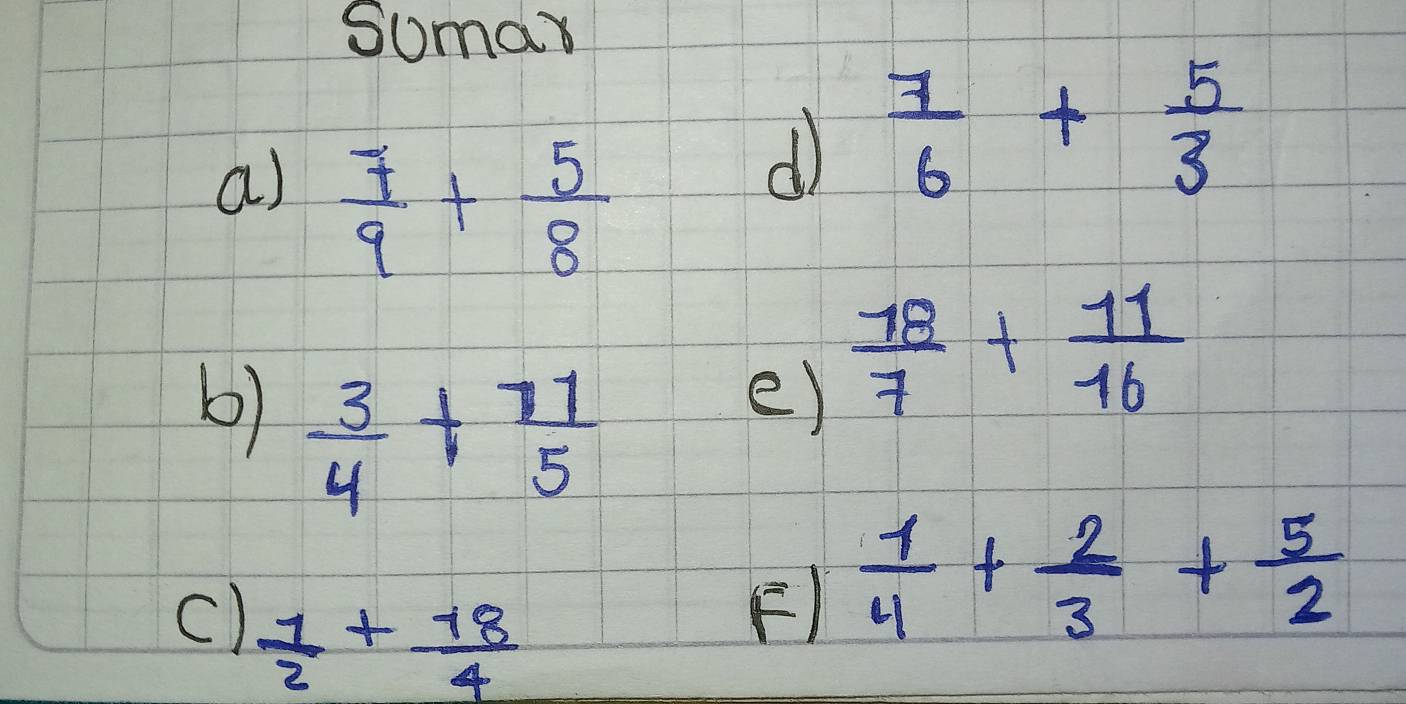 Sumar
a) 7/9 + 5/8
b) 3/4 + 11/5
c) 1/2 + 18/4
d) 7/6 + 5/3
e) 18/7 + 11/16
F) 1/4 + 2/3 + 5/2